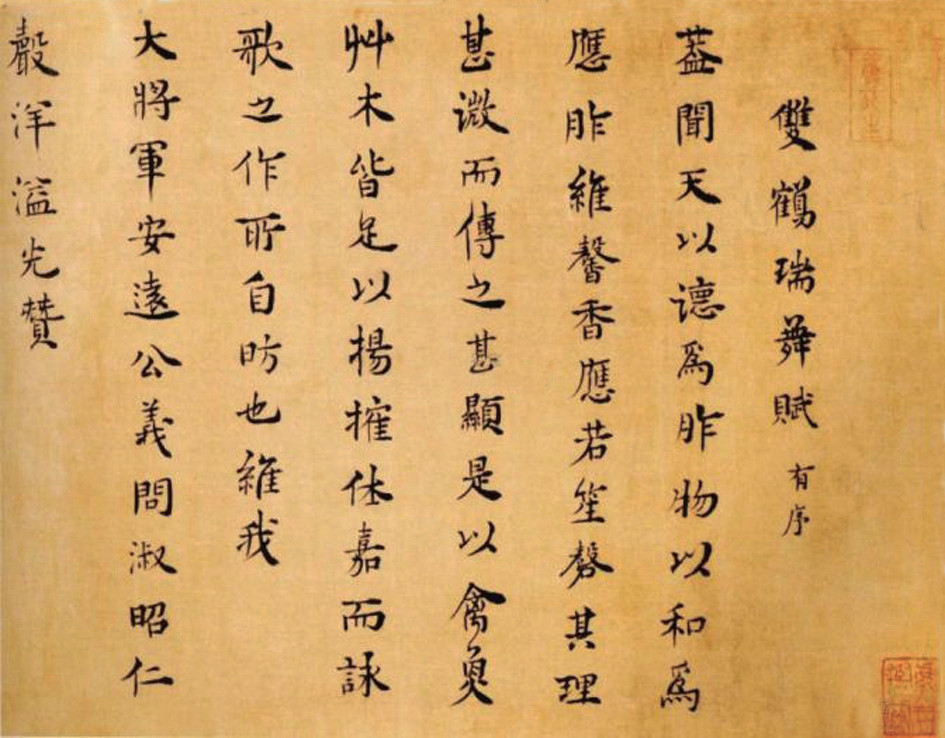 雙鶴瑞舞賦 有序
葢聞天以德爲胙物以和爲
應胙維馨香應若笙磬其理
甚微而傳之甚顯是以禽魚
艸木皆足以揚搉休嘉而詠
歌之作所自昉也維我
大將軍安遠公義問淑昭仁
聲洋溢光贊